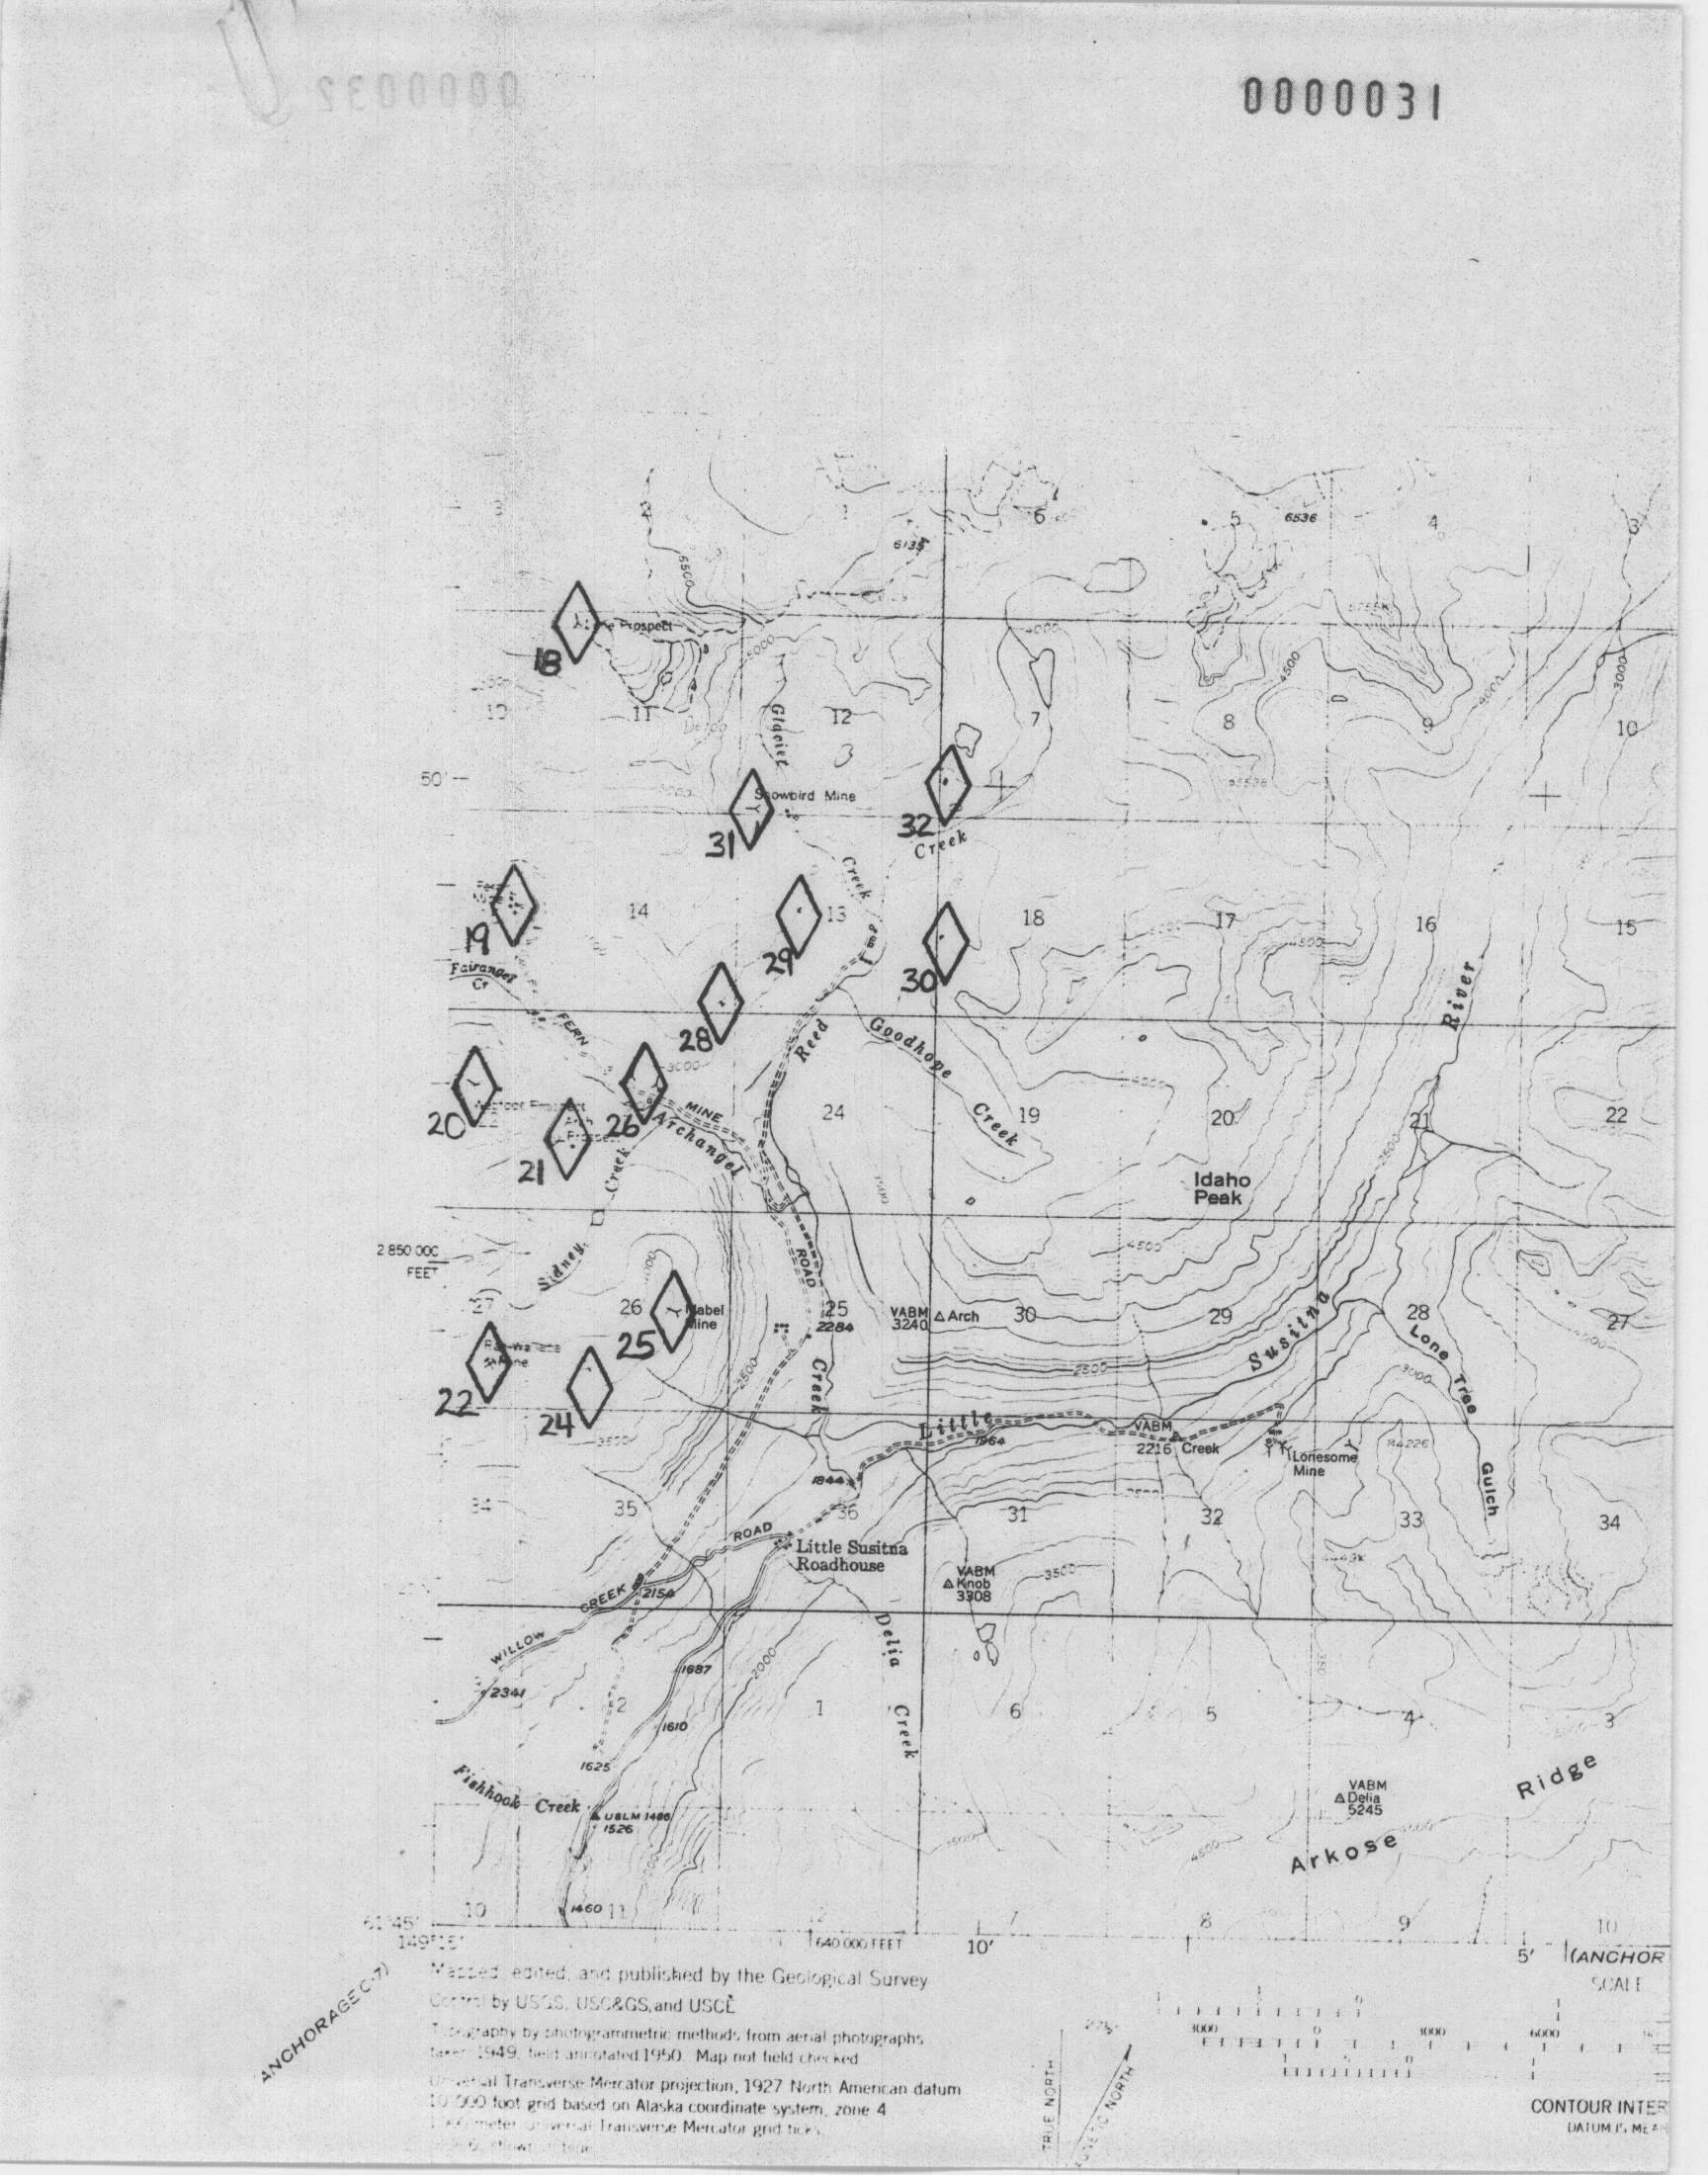 0000032
0000031
3
2
1
6
5
6536
4
3
6135
5500
Prospect
18
5000
4000
4500
4000
3000
10
11
Glacier
12
7
8
9
10
50'
Snowbird Mine
31
32
Creek
Creek
19
14
13
18
17
16
15
29
30
Fairangel
Cr
FERN
28
Reed
Goodhope
River
3000
20
21
26
MINE
Archangel
24
Creek
19
20
21
22
Creek
2500
Idaho
Peak
2 850 000
FEET
Sidney
ROAD
4500
27
26
Mabel
Mine
25
25
2284
VABM
3240
Arch
30
29
Susitna
28
27
Lone
Tree
22
24
2500
Creek
2500
3000
3500
Little
1964
VABM
2216
Creek
Lonesome
Mine
Gulch
1844
34
35
36
31
32
33
34
ROAD
Little Susitna
Roadhouse
CREEK
2154
VABM
Knob
3308
3500
WILLOW
Delia
1687
2000
2341
2
1
6
5
4
3
Creek
1610
1625
Fishhook Creek
USLM 1486
1526
VABM
Delia
5245
Ridge
Arkose
4500
10
1460
11
12
7
8
9
10
61°45'
149°15'
640 000 FEET
10'
5'
(ANCHOR
SCALE
ANCHORAGE C-7)
Mapped, edited, and published by the Geological Survey
Control by USGS, USC&GS, and USCE
Topography by photogrammetric methods from aerial photographs
taken 1949, field annotated 1950. Map not field checked
Universal Transverse Mercator projection, 1927 North American datum
10 000 foot grid based on Alaska coordinate system, zone 4
Universal Transverse Mercator grid ticks,
3000
0
3000
6000
TRUE NORTH
MAGNETIC NORTH
CONTOUR INTER
DATUM IS MEAN